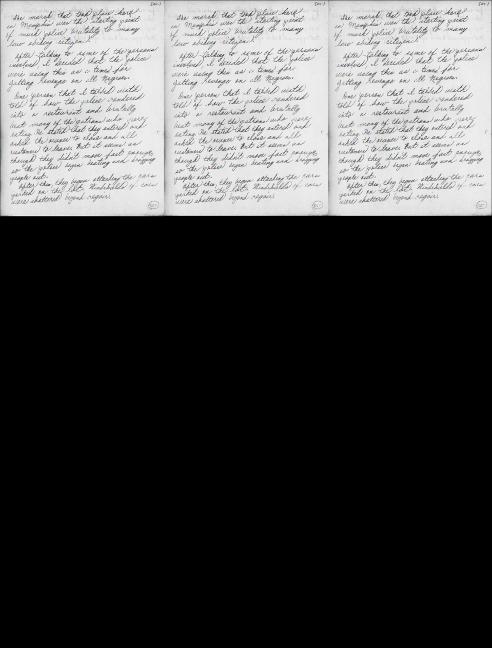 The march that took place here
in Memphis was the starting point
of much police brutality to many
law abiding citizens.
After talking to some of the persons
involved, I decided that the police
were using this as a time for
getting revenge on all Negroes.
One person that I talked with
told of how the police entered
into a restaurant and brutally
beat many of the patrons who were
eating. He stated that they entered and
asked the owner to close and all
customers to leave. But it seems as
though they didn't move fast enough
so the police began beating and dragging
people out.
After this, they began attacking the cars
parked on the lot. Windshields of cars
were shattered beyond repair.
The march that took place here
in Memphis was the starting point
of much police brutality to many
law abiding citizens.
After talking to some of the persons
involved, I decided that the police
were using this as a time for
getting revenge on all Negroes.
One person that I talked with
told of how the police entered
into a restaurant and brutally
beat many of the patrons who were
eating. He stated that they entered and
asked the owner to close and all
customers to leave. But it seems as
though they didn't move fast enough
so the police began beating and dragging
people out.
After this, they began attacking the cars
parked on the lot. Windshields of cars
were shattered beyond repair.
The march that took place here
in Memphis was the starting point
of much police brutality to many
law abiding citizens.
After talking to some of the persons
involved, I decided that the police
were using this as a time for
getting revenge on all Negroes.
One person that I talked with
told of how the police entered
into a restaurant and brutally
beat many of the patrons who were
eating. He stated that they entered and
asked the owner to close and all
customers to leave. But it seems as
though they didn't move fast enough
so the police began beating and dragging
people out.
After this, they began attacking the cars
parked on the lot. Windshields of cars
were shattered beyond repair.